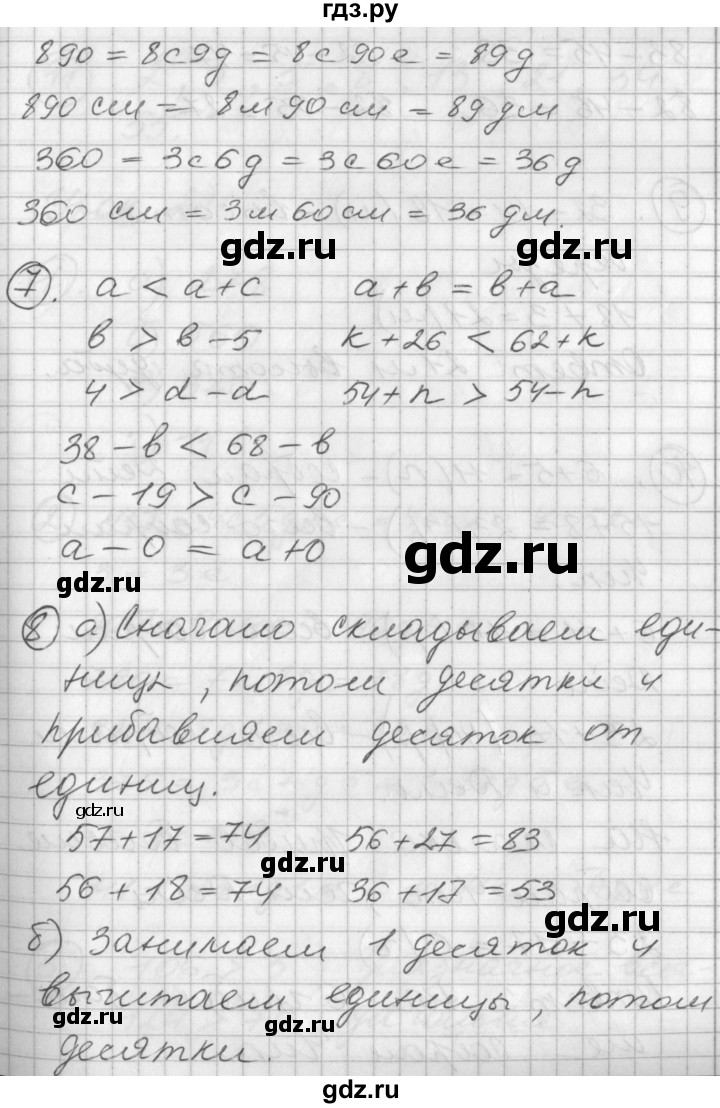 гдз.ру
890 = 8с9д = 8с 90е = 89д
890 см = 8м 90 см = 89 дм
360 = 3с6д = 3с 60е = 36д
360 см = 3м 60 см = 36 дм.
gdz.ru gdz.ru
7. а < а+с а+в = в+а
в > в-5 к+26 < 62+к
4 > d-d 54+n > 54-n
38-в < 68-в
с-19 > с-90
gdz.ru
а-0 = а+0
gdz.ru
8 а) Сначало складываем еди-
ницы, потом десятки и
прибавляем десяток от
единиц.
gdz.ru
57+17=74 56+27=83
gdz.ru
56+18=74 36+17=53
gdz.ru
б) Занимаем 1 десяток и
вычитаем единицы, потом
gdz.ru gdz.ru
десятки.
gdz.ru